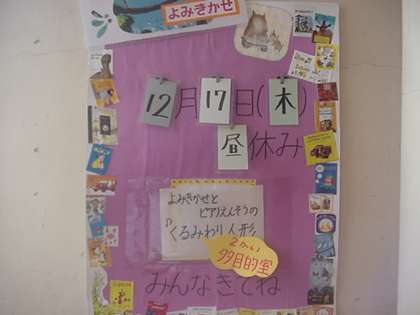 よみきかせ
12月17日(木)
昼休み
よみきかせと
ピアノえんそうの
「くるみわり人形
2かい
多目的室
みんなきてね